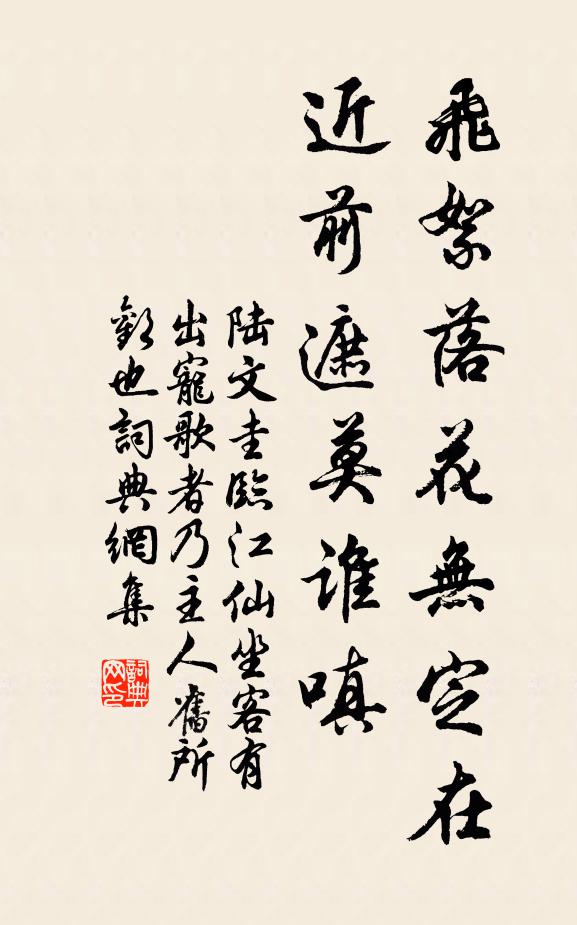 飛絮落花無定在
近前遮莫誰嗔
陸文圭臨江仙坐客有
出寵歌者乃主人舊所
歡也詞典網集
詞典网印